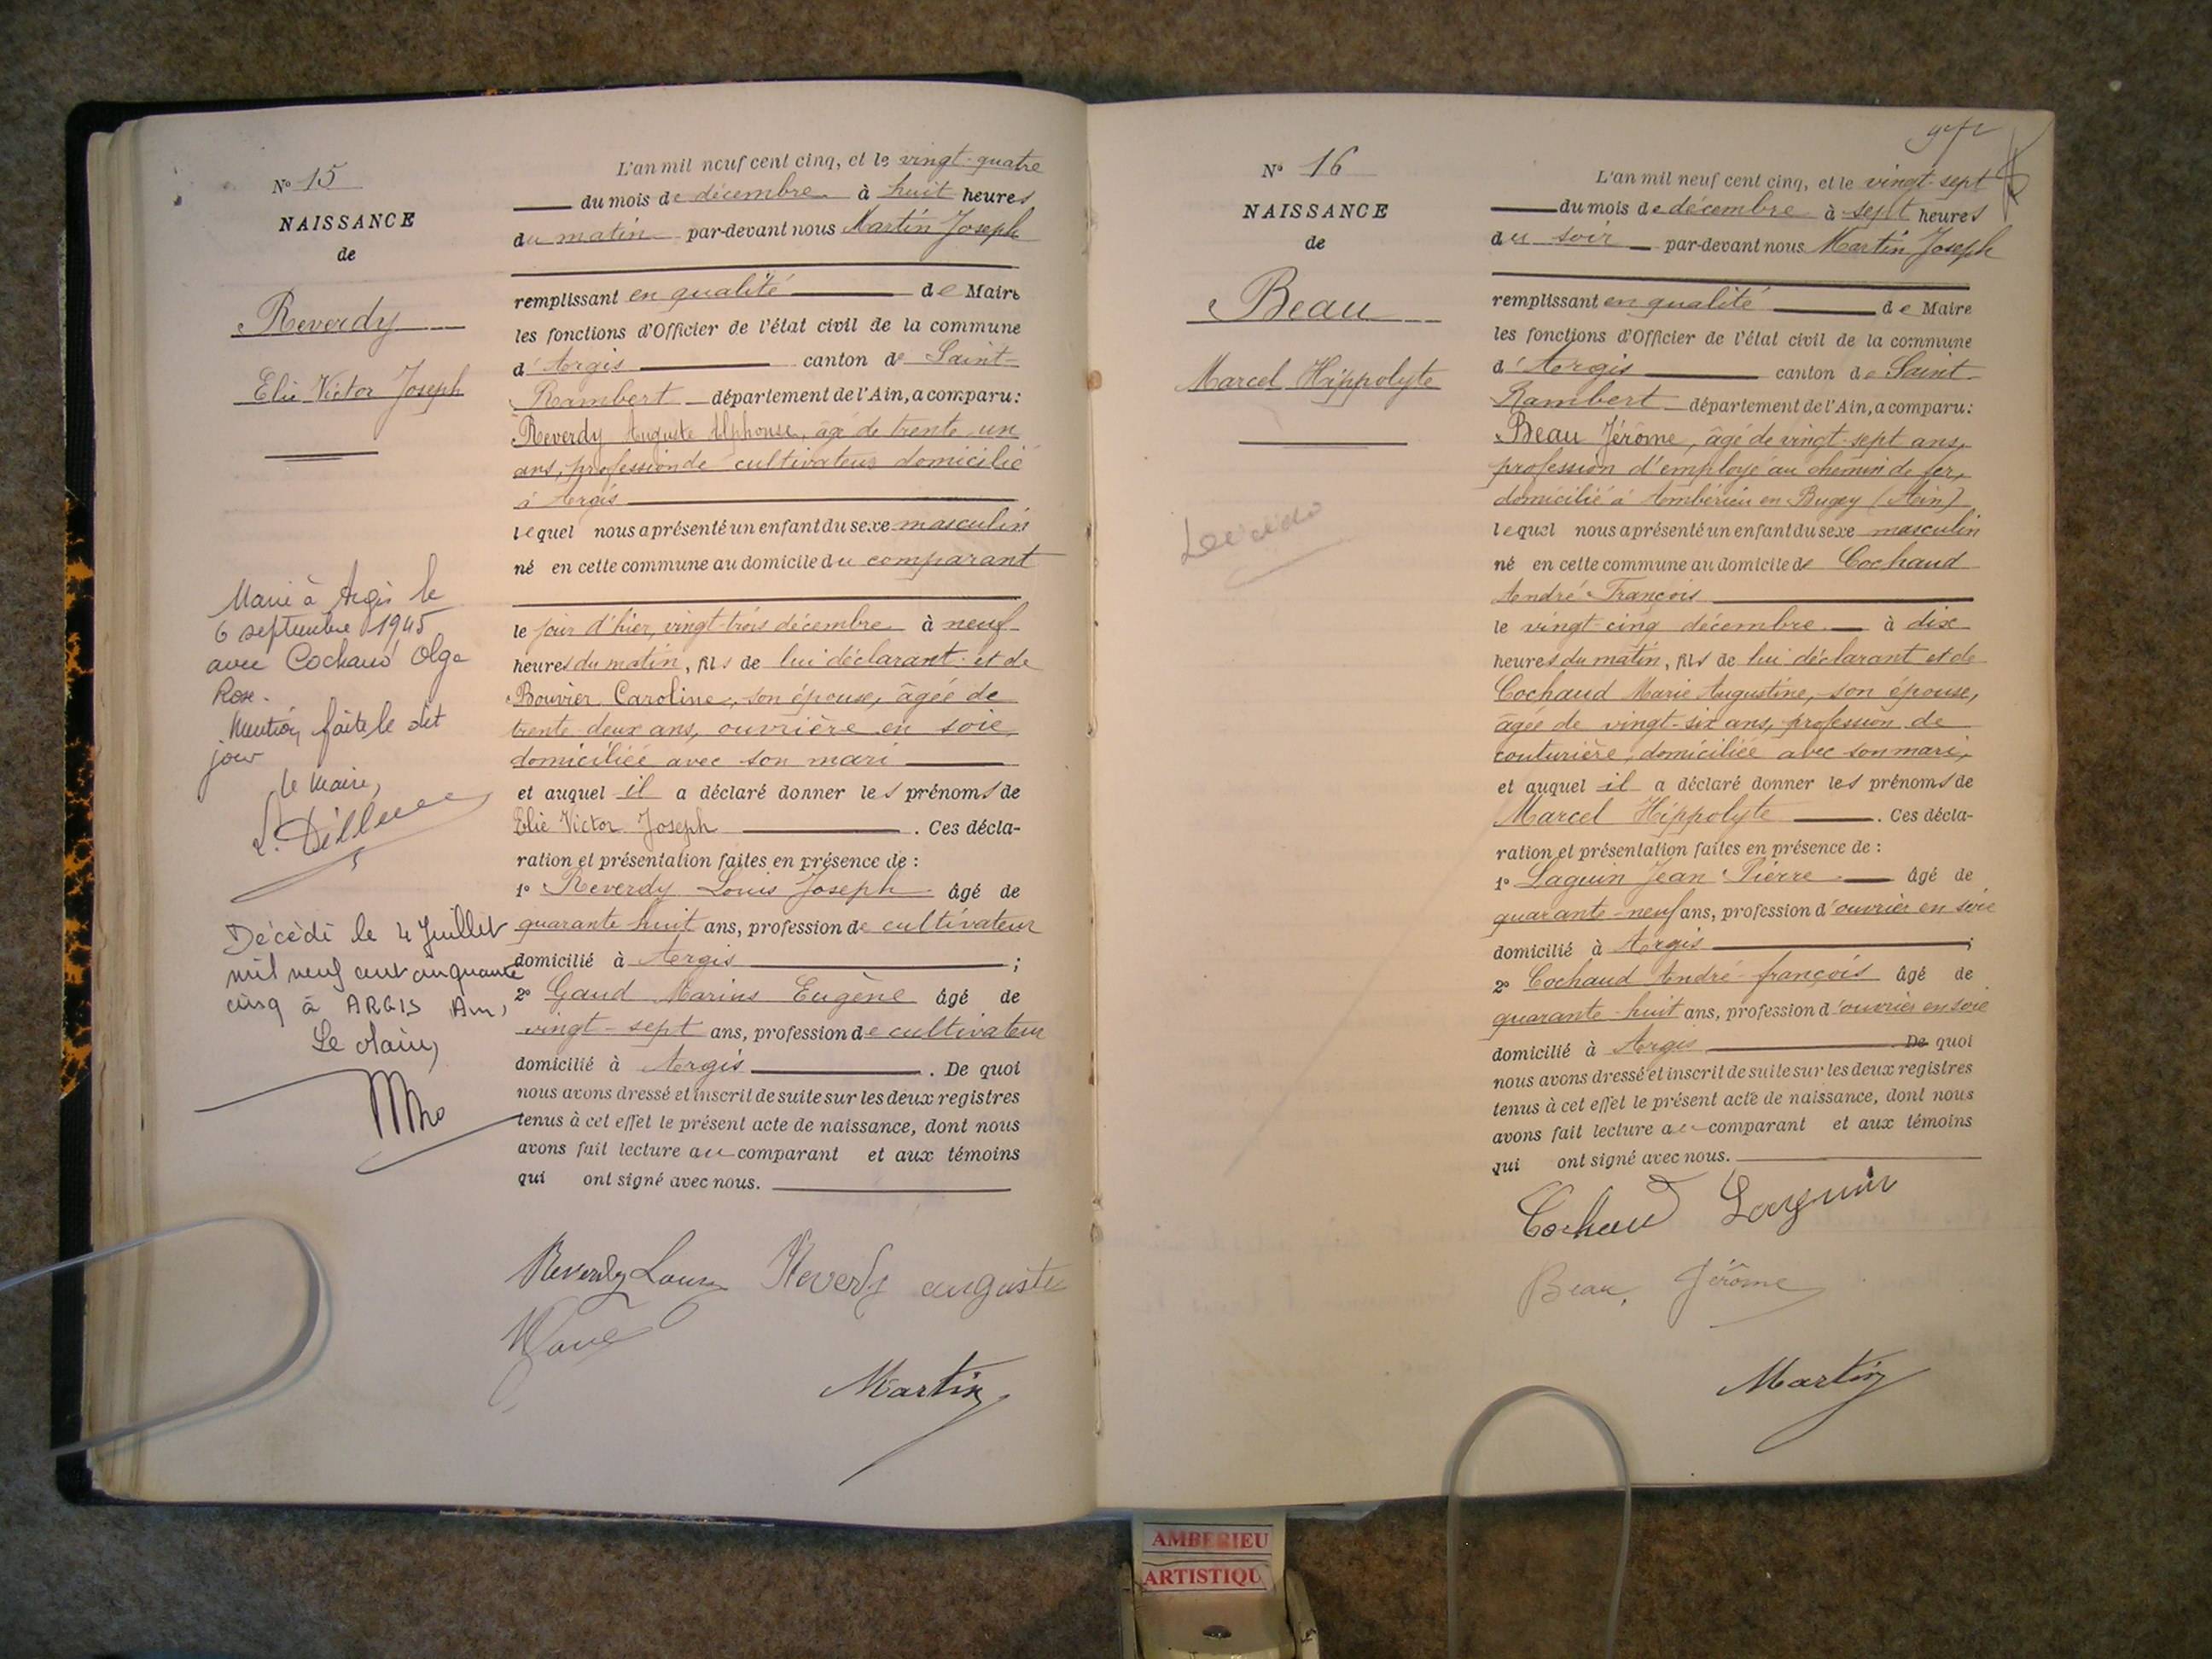 N° 15
NAISSANCE
de
Reverdy
Elie Victor Joseph
Marié à Argis le
6 septembre 1945
avec Cochaud Olga
Rose.
Mention faite le dit
jour
le Maire,
Décédé le 4 Juillet
mil neuf cent cinquante
cinq à ARGIS Ain,
Le Maire,
L'an mil neuf cent cinq, et le vingt-quatre
du mois de décembre à huit heures
du matin par-devant nous Martin Joseph
remplissant en qualité de Maire
les fonctions d'Officier de l'état civil de la commune
d'Argis canton de Saint-
Rambert département de l'Ain, a comparu:
Reverdy Auguste Alphonse, âgé de trente un
ans, profession de cultivateur domicilié
à Argis
lequel nous a présenté un enfant du sexe masculin
né en cette commune au domicile du comparant
le jour d'hier, vingt-trois décembre à neuf
heures du matin, fils de lui déclarant et de
Bouvier Caroline, son épouse, âgée de
trente deux ans, ouvrière en soie,
domiciliée avec son mari
et auquel il a déclaré donner les prénoms de
Elie Victor Joseph . Ces décla-
ration et présentation faites en présence de :
1° Reverdy Louis Joseph âgé de
quarante huit ans, profession de cultivateur
domicilié à Argis ;
2° Gaud Marius Eugène âgé de
vingt-sept ans, profession de cultivateur
domicilié à Argis . De quoi
nous avons dressé et inscrit de suite sur les deux registres
tenus à cet effet le présent acte de naissance, dont nous
avons fait lecture au comparant et aux témoins
qui ont signé avec nous.
Reverdy Louis Reverdy auguste
Martin
N° 16
NAISSANCE
de
Beau
Marcel Hippolyte
L'an mil neuf cent cinq, et le vingt-sept
du mois de décembre à sept heures
du soir par-devant nous Martin Joseph
remplissant en qualité de Maire
les fonctions d'Officier de l'état civil de la commune
d'Argis canton de Saint-
Rambert département de l'Ain, a comparu:
Beau Jérôme, âgé de vingt-sept ans,
profession d'employé au chemin de fer,
domicilié à Ambérieu en Bugey (Ain)
lequel nous a présenté un enfant du sexe masculin
né en cette commune au domicile de Cochaud
André François
le vingt-cinq décembre à dix
heures du matin, fils de lui déclarant et de
Cochaud Marie Augustine, son épouse,
âgée de vingt-six ans, profession de
couturière, domiciliée avec son mari,
et auquel il a déclaré donner les prénoms de
Marcel Hippolyte . Ces décla-
ration et présentation faites en présence de :
1° Laguin Jean Pierre âgé de
quarante-neuf ans, profession d'ouvrier en soie
domicilié à Argis ;
2° Cochaud André françois âgé de
quarante-huit ans, profession d'ouvrier en soie
domicilié à Argis . De quoi
nous avons dressé et inscrit de suite sur les deux registres
tenus à cet effet le présent acte de naissance, dont nous
avons fait lecture au comparant et aux témoins
qui ont signé avec nous.
Cochaud Laguin
Beau, Jérôme
Martin
AMBERIEU
ARTISTIQU